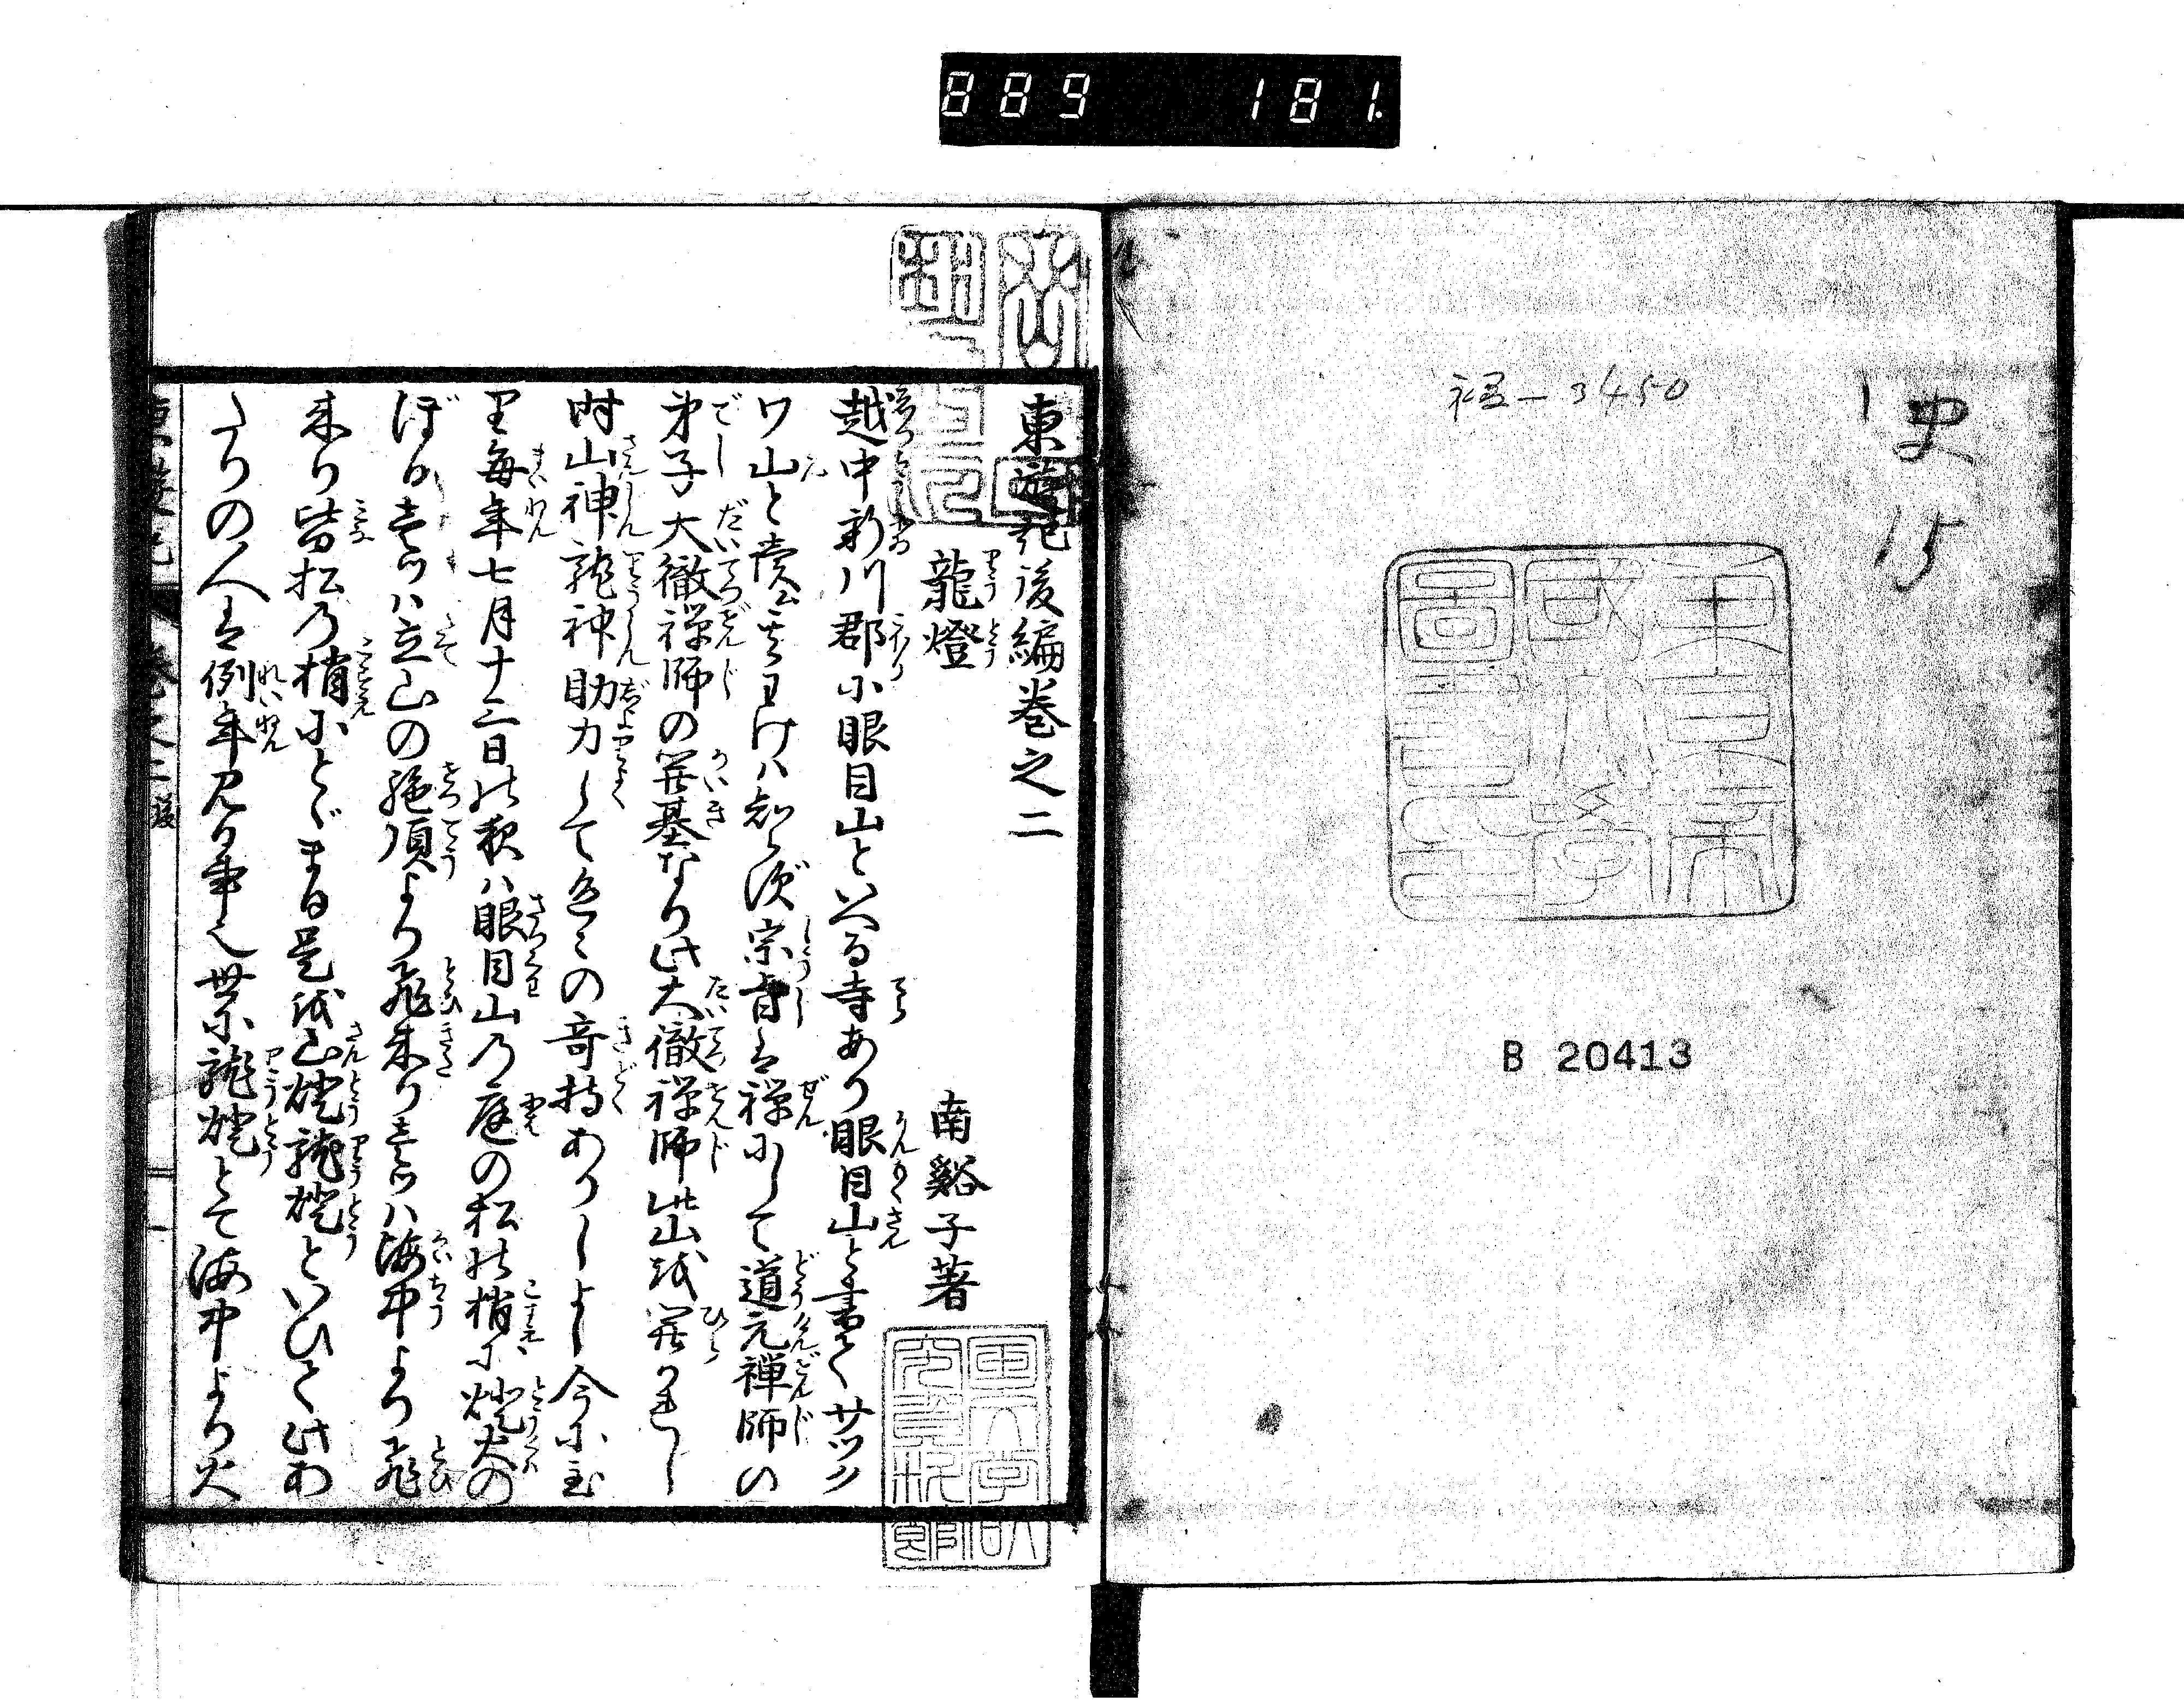 889 181.
史
15
B 20413
東遊記後編巻之二
龍燈
南谿子著
越中新川郡小眼目山といへる寺あり眼目山と書てサツク
ワ山と読ム其ゆけハ知らず宗旨は禅にして道元禅師の
弟子大徹禅師の開基なり此大徹禅師此山を開かれし
時山神龍神助力して色々の奇特ありしよし今に至
り毎年七月十三日の夜ハ眼目山の庭の松の梢に燈火の
ぼる壱ツハ立山の絶頂より飛来り壱ツハ海中より飛
来り皆松の梢にとゞまる是を山燈龍燈といひて此わ
たりの人は例年見る事也世に龍燈とて海中より火